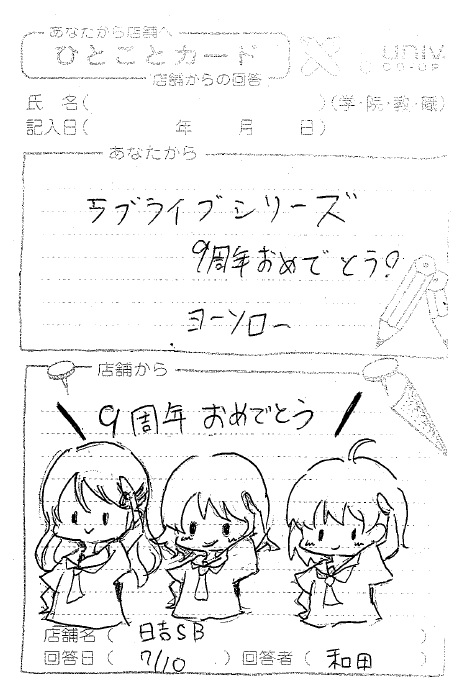 あなたから店舗へ
ひとことカード
店舗からの回答
univ.
CO-OP
氏 名( )(学・院・教・職)
記入日( 年 月 日)
あなたから
ラブライブシリーズ
9周年おめでとう!
ヨーソロー
店舗から
9周年 おめでとう
店舗名( 日吉SB )
回答日( 7/10 )回答者( 和田 )